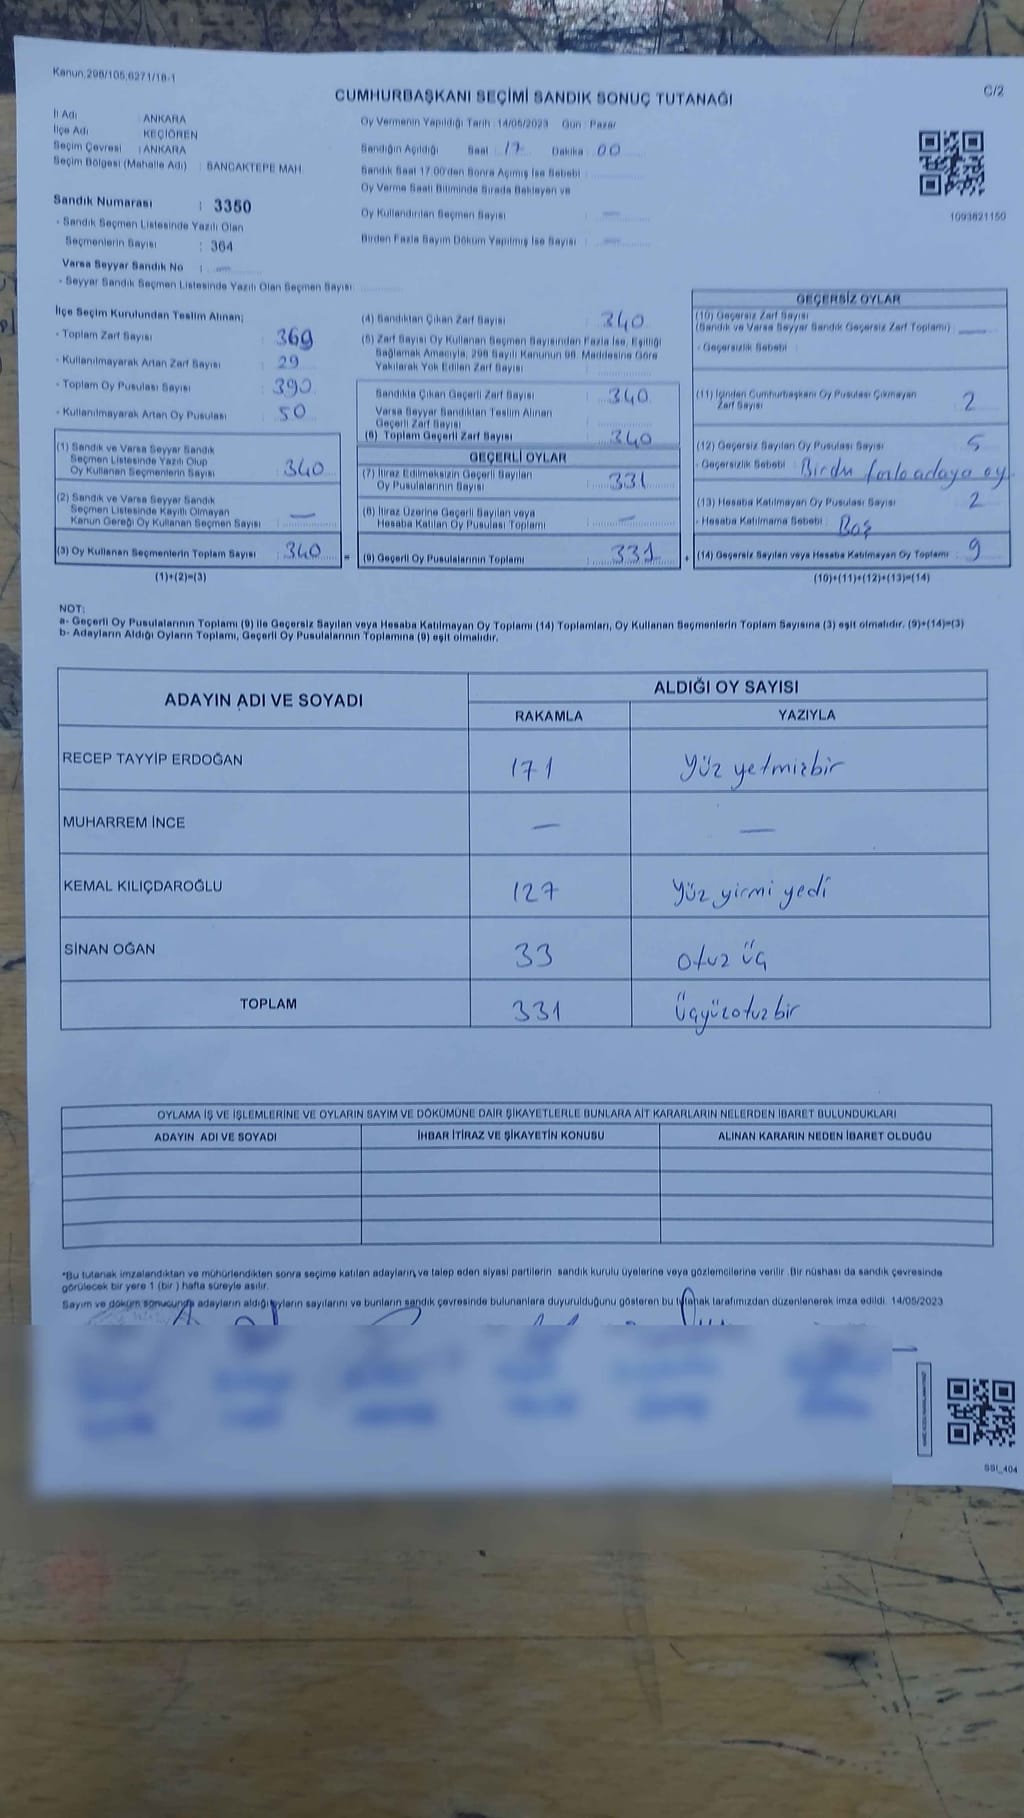 Kanun:298/105;6271/18-1
C/2
CUMHURBAŞKANI SEÇİMİ SANDIK SONUÇ TUTANAĞI
İl Adı : ANKARA
İlçe Adı : KEÇİÖREN
Seçim Çevresi : ANKARA
Seçim Bölgesi (Mahalle Adı) : SANCAKTEPE MAH.
Sandık Numarası : 3350
- Sandık Seçmen Listesinde Yazılı Olan
Seçmenlerin Sayısı : 364
Varsa Seyyar Sandık No : —
- Seyyar Sandık Seçmen Listesinde Yazılı Olan Seçmen Sayısı:
Oy Vermenin Yapıldığı Tarih :14/05/2023 Gün : Pazar
Sandığın Açıldığı Saat : 17 Dakika : 00
Sandık Saat 17:00'den Sonra Açılmış İse Sebebi :
Oy Verme Saati Bitiminde Sırada Bekleyen ve
Oy Kullandırılan Seçmen Sayısı : —
Birden Fazla Sayım Döküm Yapılmış İse Sayısı : —
1093821150
İlçe Seçim Kurulundan Teslim Alınan;
- Toplam Zarf Sayısı : 369
- Kullanılmayarak Artan Zarf Sayısı : 29
- Toplam Oy Pusulası Sayısı : 390
- Kullanılmayarak Artan Oy Pusulası : 50
(1) Sandık ve Varsa Seyyar Sandık
Seçmen Listesinde Yazılı Olup
Oy Kullanan Seçmenlerin Sayısı : 340
(2) Sandık ve Varsa Seyyar Sandık
Seçmen Listesinde Kayıtlı Olmayan
Kanun Gereği Oy Kullanan Seçmen Sayısı : —
(3) Oy Kullanan Seçmenlerin Toplam Sayısı : 340 =
(1)+(2)=(3)
(4) Sandıktan Çıkan Zarf Sayısı : 340
(5) Zarf Sayısı Oy Kullanan Seçmen Sayısından Fazla İse, Eşitliği
Sağlamak Amacıyla, 298 Sayılı Kanunun 98. Maddesine Göre
Yakılarak Yok Edilen Zarf Sayısı
Sandıkta Çıkan Geçerli Zarf Sayısı : 340
Varsa Seyyar Sandıktan Teslim Alınan
Geçerli Zarf Sayısı
(6) Toplam Geçerli Zarf Sayısı : 340
GEÇERLİ OYLAR
(7) İtiraz Edilmeksizin Geçerli Sayılan
Oy Pusulalarının Sayısı : 331
(8) İtiraz Üzerine Geçerli Sayılan veya
Hesaba Katılan Oy Pusulası Toplamı : —
(9) Geçerli Oy Pusulalarının Toplamı : 331 +
GEÇERSİZ OYLAR
(10) Geçersiz Zarf Sayısı
(Sandık ve Varsa Seyyar Sandık Geçersiz Zarf Toplamı) : —
- Geçersizlik Sebebi :
(11) İçinden Cumhurbaşkanı Oy Pusulası Çıkmayan
Zarf Sayısı 2
(12) Geçersiz Sayılan Oy Pusulası Sayısı 5
- Geçersizlik Sebebi : adaya oy
(13) Hesaba Katılmayan Oy Pusulası Sayısı 2
- Hesaba Katılmama Sebebi : Boş
(14) Geçersiz Sayılan veya Hesaba Katılmayan Oy Toplamı : 9
(10)+(11)+(12)+(13)=(14)
NOT:
a- Geçerli Oy Pusulalarının Toplamı (9) ile Geçersiz Sayılan veya Hesaba Katılmayan Oy Toplamı (14) Toplamları, Oy Kullanan Seçmenlerin Toplam Sayısına (3) eşit olmalıdır. (9)+(14)=(3)
b- Adayların Aldığı Oyların Toplamı, Geçerli Oy Pusulalarının Toplamına (9) eşit olmalıdır.
ADAYIN ADI VE SOYADI
ALDIĞI OY SAYISI
RAKAMLA YAZIYLA
RECEP TAYYİP ERDOĞAN 171 Yüz yetmişbir
MUHARREM İNCE — —
KEMAL KILIÇDAROĞLU 127 Yüz yirmi yedi
SİNAN OĞAN 33 otuz üç
TOPLAM 331 Üçyüzotuz bir
OYLAMA İŞ VE İŞLEMLERİNE VE OYLARIN SAYIM VE DÖKÜMÜNE DAİR ŞİKAYETLERLE BUNLARA AİT KARARLARIN NELERDEN İBARET BULUNDUKLARI
ADAYIN ADI VE SOYADI İHBAR İTİRAZ VE ŞİKAYETİN KONUSU ALINAN KARARIN NEDEN İBARET OLDUĞU
*Bu tutanak imzalandıktan ve mühürlendikten sonra seçime katılan adayların,ve talep eden siyasi partilerin sandık kurulu üyelerine veya gözlemcilerine verilir. Bir nüshası da sandık çevresinde
görülecek bir yere 1 (bir ) hafta süreyle asılır.
Sayım ve döküm sonucunda adayların aldığı oyların sayılarını ve bunların sandık çevresinde bulunanlara duyurulduğunu gösteren bu tutanak tarafımızdan düzenlenerek imza edildi. 14/05/2023
SSI_404